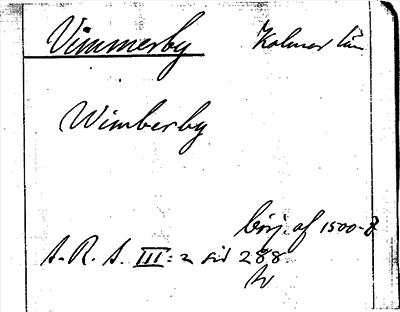 Vimmerby Kalmar län
Wimberby
börj. af 1500-t
S.R.A. III: 2 sid 288